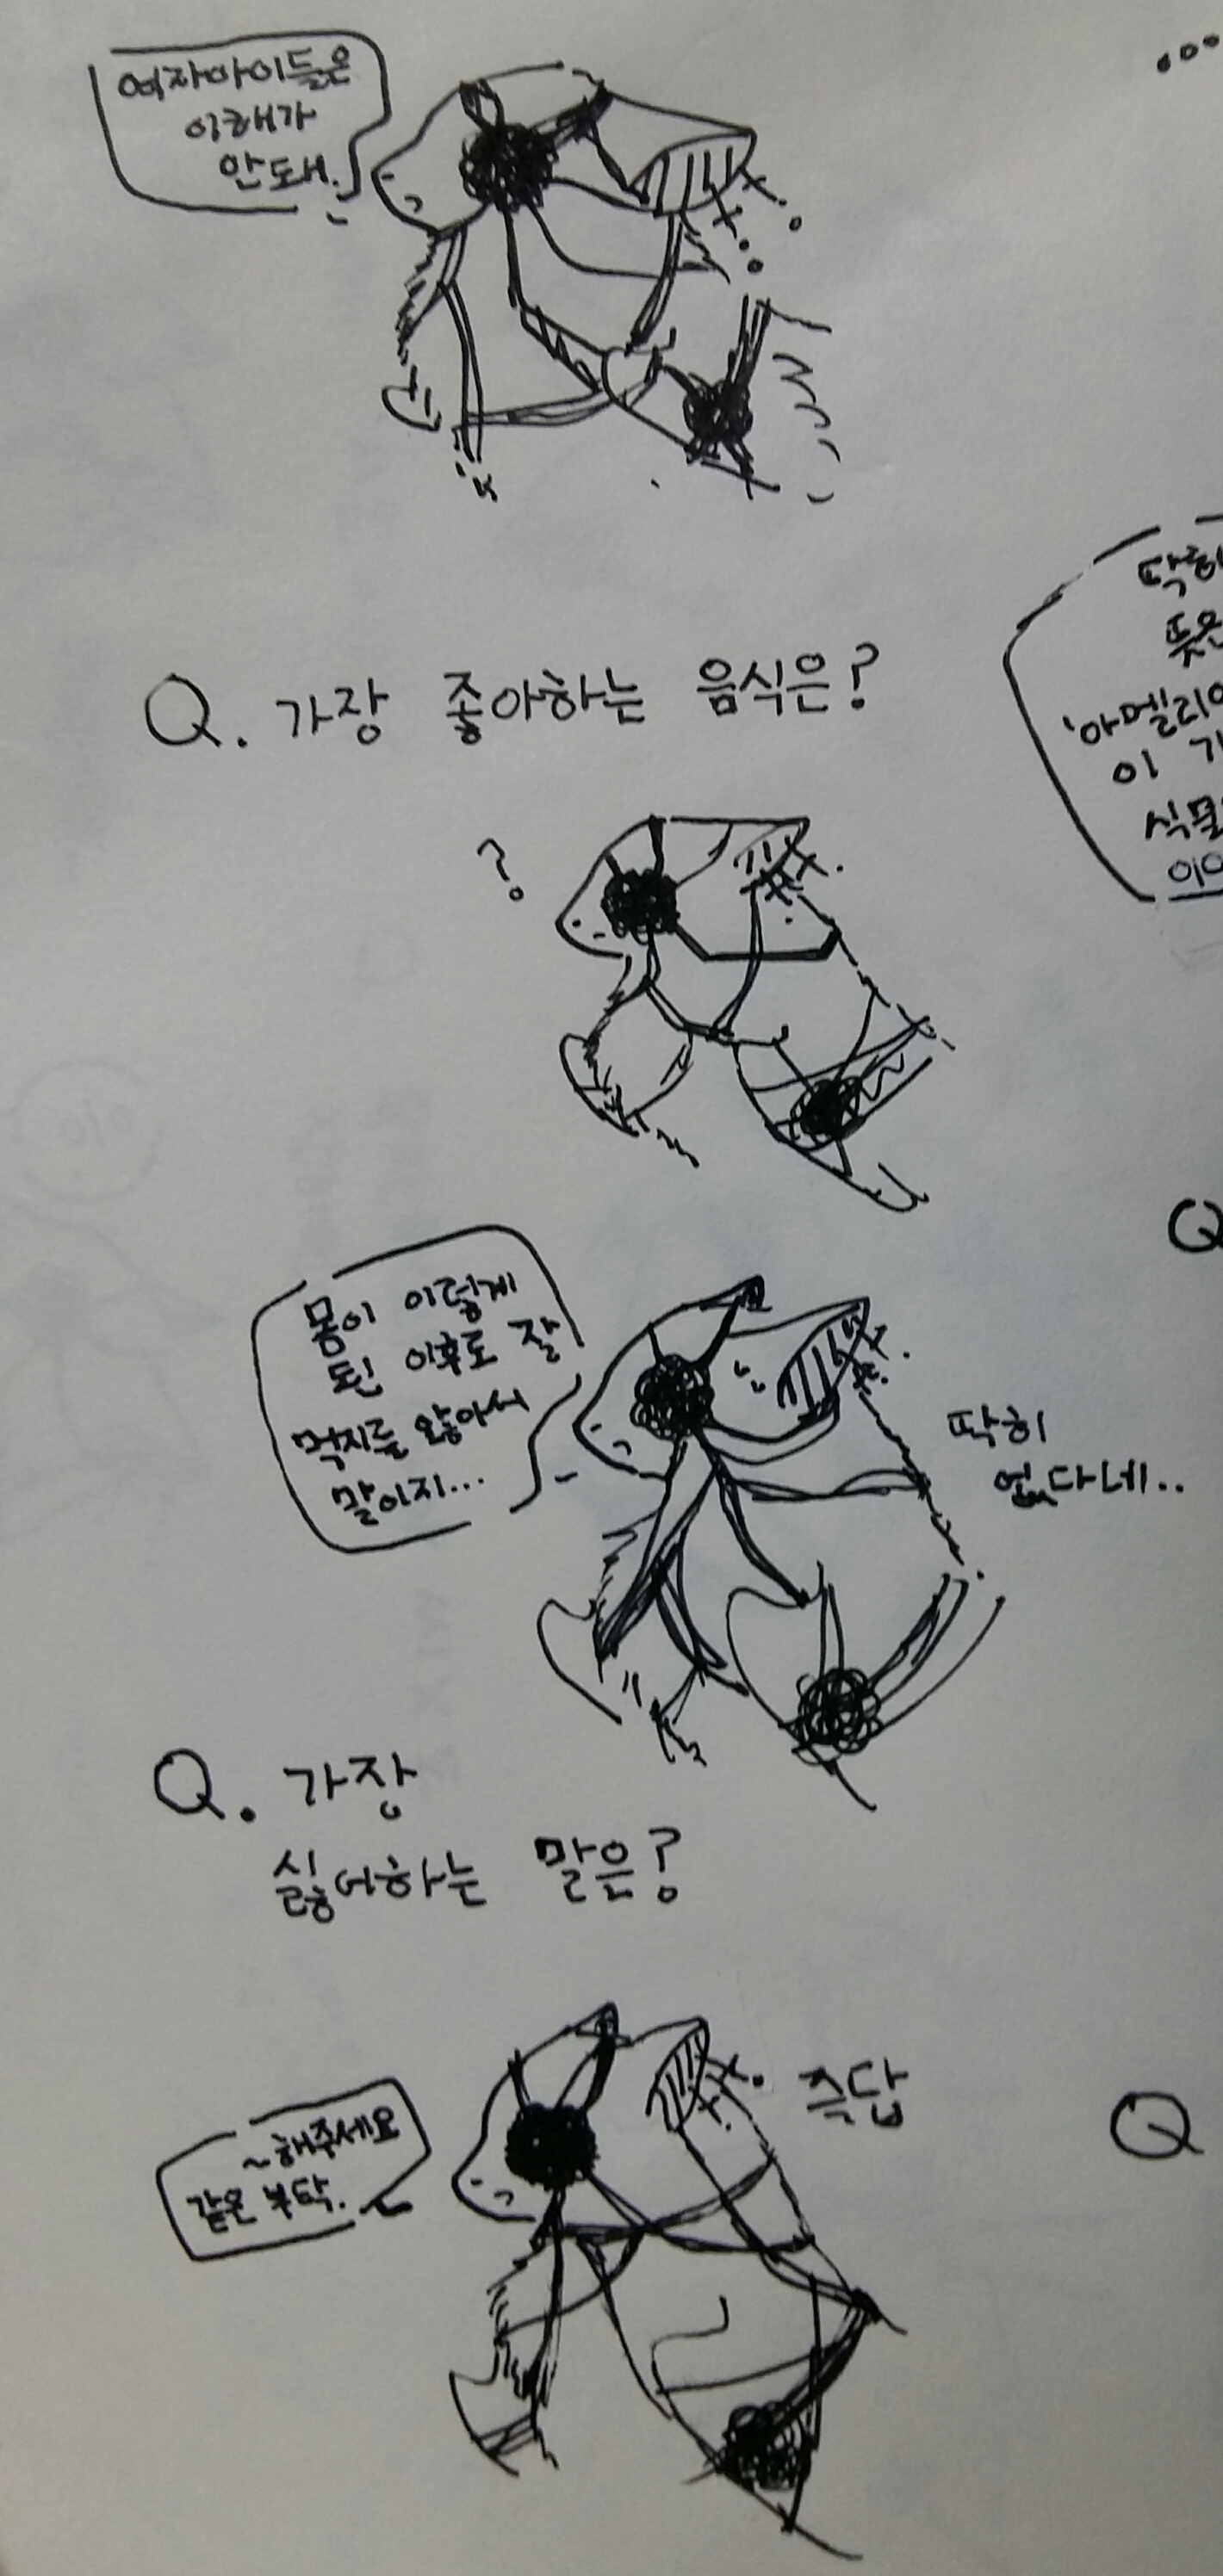 여자아이들은
이해가
안돼.
Q. 가장 좋아하는 음식은?
?
몸이 이렇게
된 이후로 잘
먹지를 않아서
말이지...
딱히
없다네..
Q. 가장
싫어하는 말은?
~해주세요
같은 부탁.
즉답
...
딱히
뜻은
'아멜리아
이
식물
Q
Q